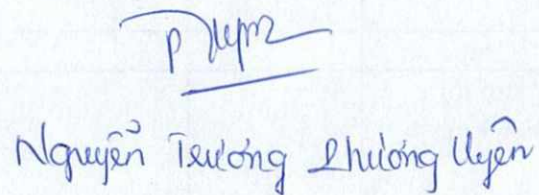 Nguyễn Trương Phương Uyên